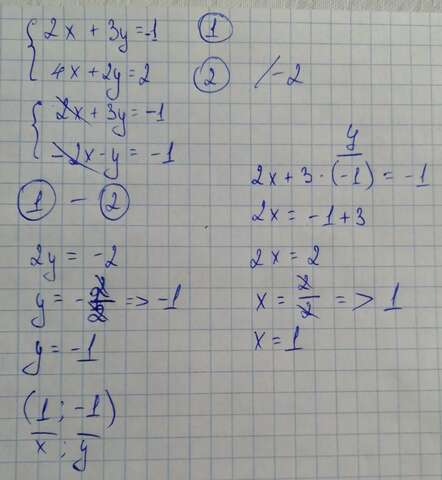 2x + 3y = -1 1
4x + 2y = 2 2 /-2
2x + 3y = -1
-2x - y = -1
1 - 2
2y = -2
y = - => -1
y = -1
(1 ; -1)
x ; y
y
2x + 3 · (-1) = -1
2x = -1 + 3
2x = 2
x = 2/2 => 1
x = 1